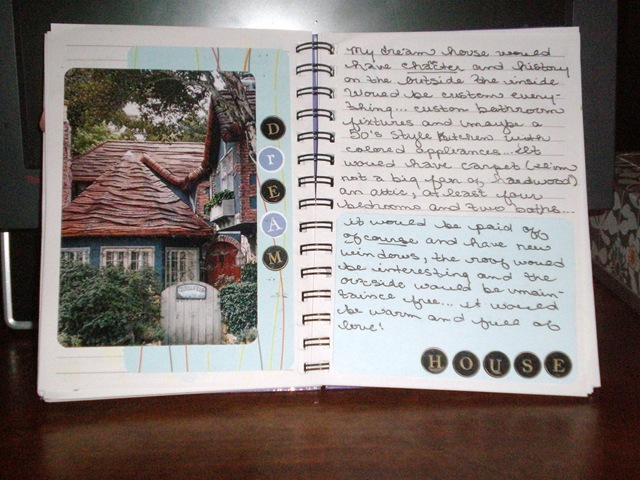 DrEAM
My dream house would
have character and history
on the outside the inside
would be custom every-
thing... custom bathroom
fixtures and maybe a
50's style kitchen with
colored appliances... It
would have carpet (I'm
not a big fan of hardwood)
an attic, at least four
bedrooms and two baths...
it would be paid off
ofcourse and have new
windows, the roof would
be interesting and the
outside would be main-
taince free... it would
be warm and full of
love!
HOUSE